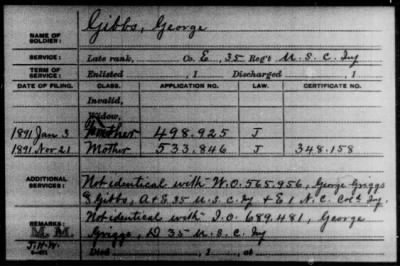 NAME OF SOLDIER: Gibbs, George
SERVICE: Late rank, Co. E, 35 Reg't U. S. C. Inf
TERM OF SERVICE: Enlisted , 1 Discharged , 1
DATE OF FILING. CLASS. APPLICATION NO. LAW. CERTIFICATE NO.
Invalid,
Widow,
1891 Jan 3 Mother 498.925 J
1891 Nov 21 Mother 533.846 J 348.158
ADDITIONAL SERVICES: Not identical with W.O. 565.956, George Griggs
& Gibbs, A & E 35 U. S. C. Inf & E 1 N. C. Cold Inf.
REMARKS: Not identical with I.O. 689.481, George
M. M. Griggs, D 35 U. S. C. Inf
J.H.W. Died , 1 , at